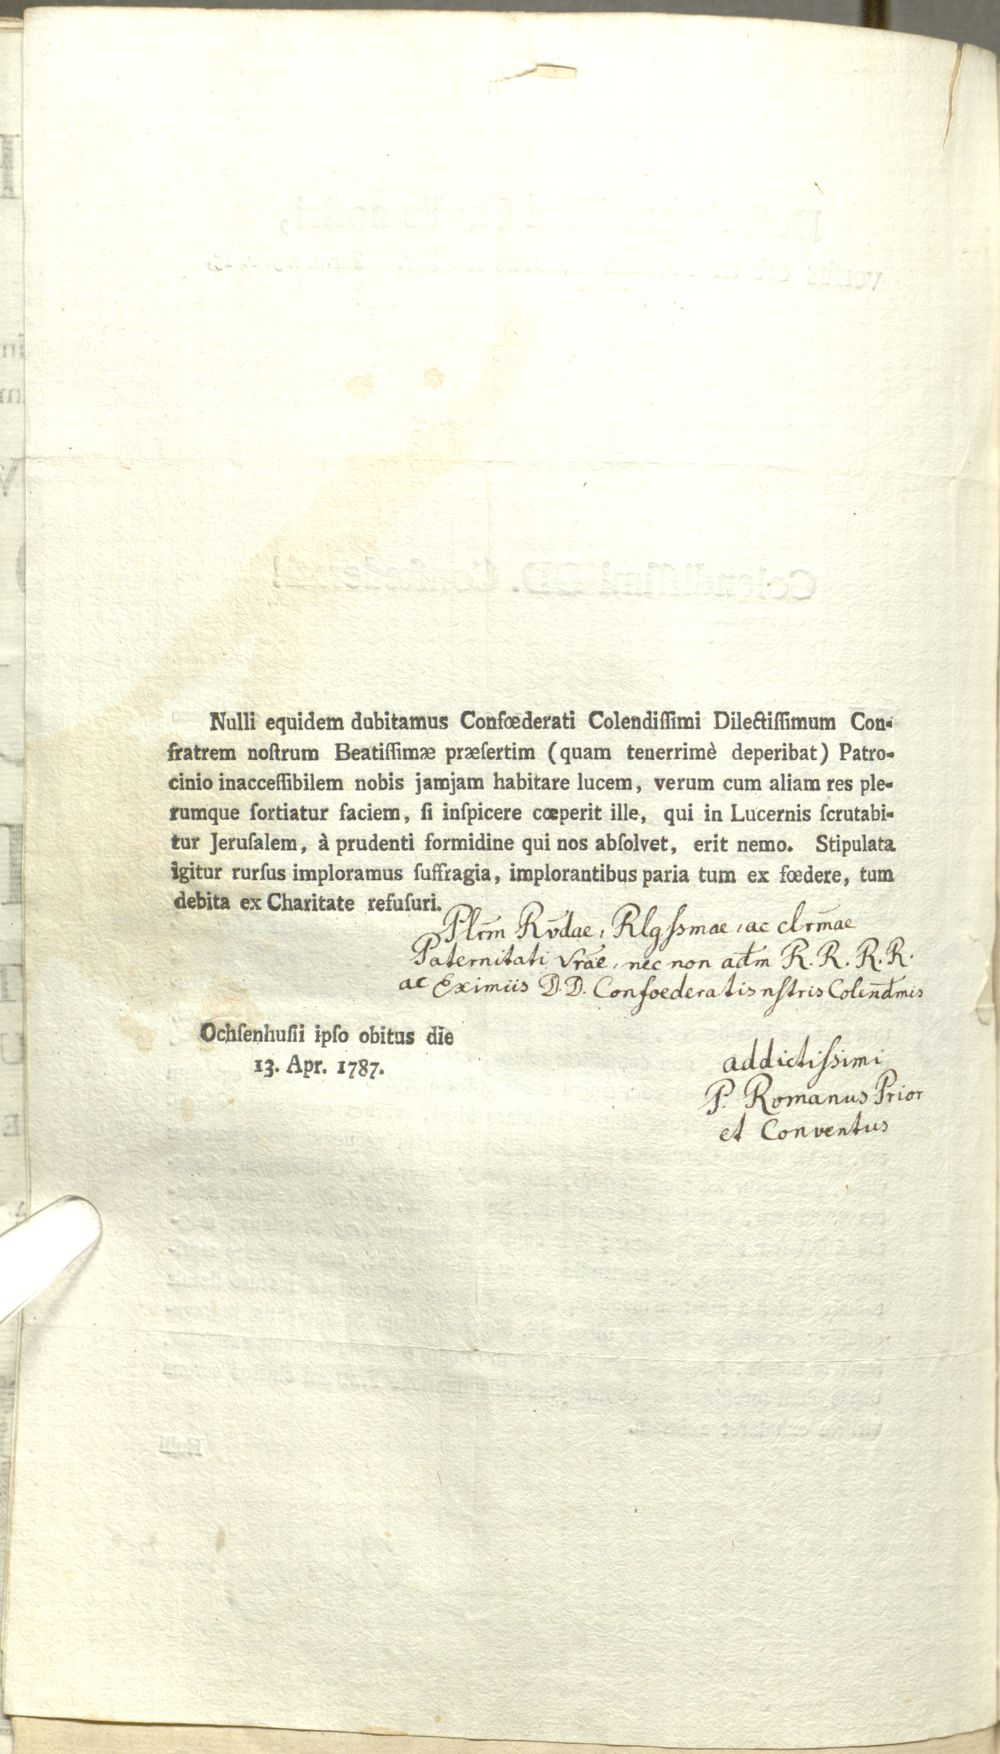 Nulli equidem dubitamus Confœderati Colendiſſimi Dilectiſſimum Con-
fratrem noſtrum Beatiſſimæ præſertim (quam tenerrimè deperibat) Patro-
cinio inacceſſibilem nobis jamjam habitare lucem, verum cum aliam res ple-
rumque ſortiatur faciem, ſi inſpicere cœperit ille, qui in Lucernis ſcrutabi-
tur Jeruſalem, à prudenti formidine qui nos abſolvet, erit nemo. Stipulata
igitur rurſus imploramus ſuffragia, implorantibus paria tum ex fœdere, tum
debita ex Charitate refuſuri.
Plr̄m Rv̄dae, Rlgſsmae, ac clr̄mae
Paternitati Vrāe, nec non ad̄m R. R. R. R.
ac Eximiis D.D. Confoederatis nſtris Colend̄mis
Ochſenhuſii ipſo obitus die
13. Apr. 1787.
addictiſsimi
P. Romanus Prior
et Conventus